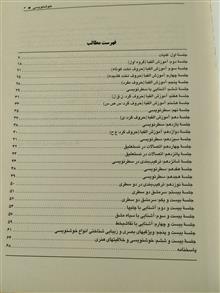 خوشنویسی
فهرست مطالب
جلسهٔ اول: کلیات
جلسهٔ دوم: آموزش الفبا (گروه اول)
جلسهٔ سوم: آموزش الفبا (حروف تخت کوتاه)
جلسهٔ چهارم: آموزش الفبا (حروف تخت کشیده)
جلسهٔ پنجم: آموزش الفبا (حروف
جلسهٔ ششم: آشنایی با سطرنویسی
جلسهٔ هفتم: آموزش الفبا (حروف گرد
جلسهٔ هشتم: آموزش الفبا (حروف گرد س ص
جلسهٔ نهم: سطرنویسی
جلسهٔ دهم: آموزش الفبا (حروف گرد
جلسهٔ یازدهم: سطرنویسی
جلسهٔ دوازدهم: آموزش الفبا (حروف گرد ع ح)
جلسهٔ سیزدهم: سطرنویسی
جلسهٔ چهاردهم: اتصالات در نستعلیق
جلسهٔ پانزدهم: اتصالات در نستعلیق
جلسهٔ شانزدهم: ترکیب‌بندی در سطرنویسی
جلسهٔ هفدهم: سطرنویسی
جلسهٔ هجدهم: سطرنویسی
جلسهٔ نوزدهم: ترکیب‌بندی در دو سطری
جلسهٔ بیستم: سرمشق دو سطری
جلسهٔ بیست و یکم: سرمشق دو سطری
جلسهٔ بیست و دوم: آشنایی با چلیپا
جلسهٔ بیست و سوم: آشنایی با سیاه مشق
جلسهٔ بیست و چهارم: آشنایی با نقاشیخط
جلسهٔ بیست و پنجم: ویژگیهای بصری و زیبایی شناختی انواع خوشنویسی
جلسهٔ بیست و ششم: خوشنویسی و خلاقیتهای هنری
پاسخنامه